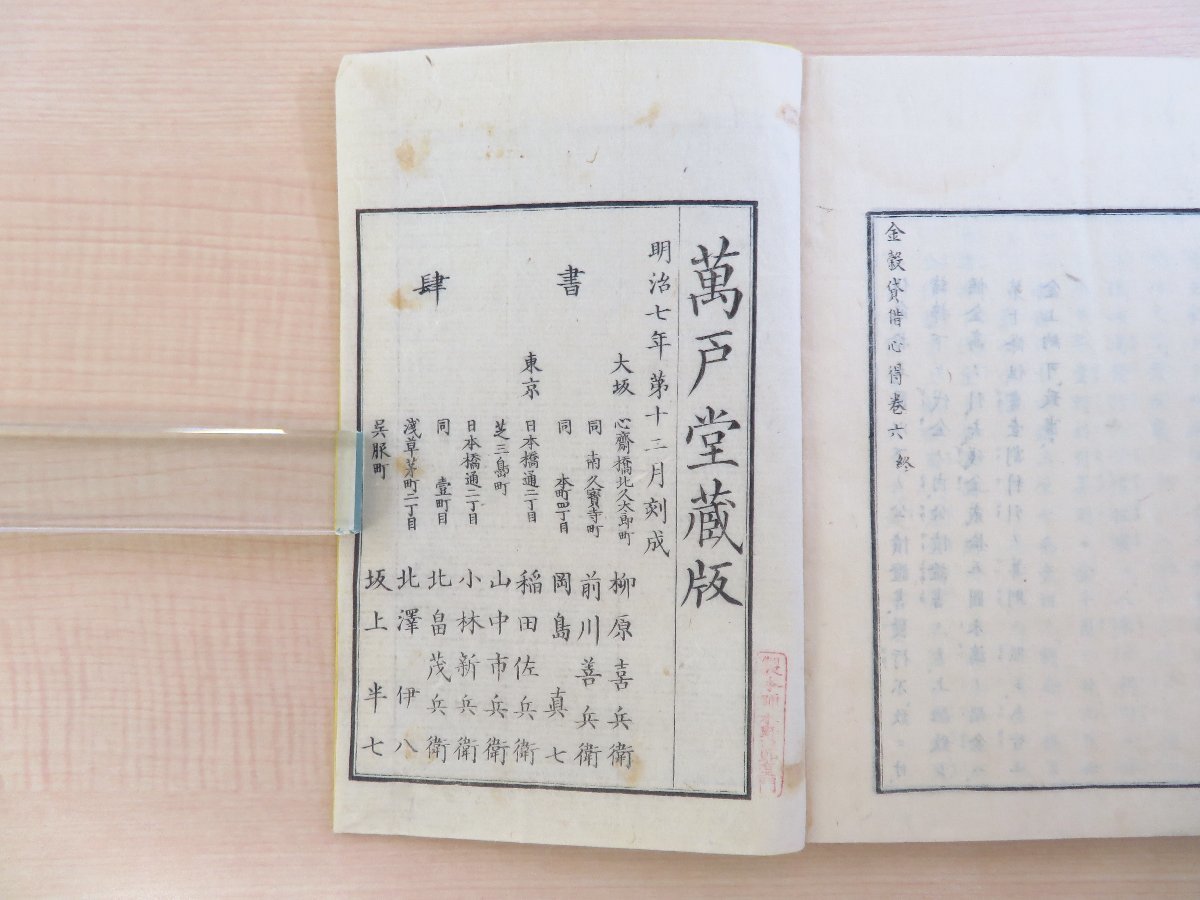 金穀貸借心得卷六 終
萬戸堂蔵版
明治七年第十二月刻成
書肆
大坂 心齋橋北久太郎町 柳原喜兵衛
同 南久寳寺町 前川善兵衛
同 本町四丁目 岡島真七
東京 日本橋通二丁目 稲田佐兵衛
芝三島町 山中市兵衛
日本橋通二丁目 小林新兵衛
同 壹町目 北畠茂兵衛
浅草茅町二丁目 北澤伊八
呉服町 坂上半七